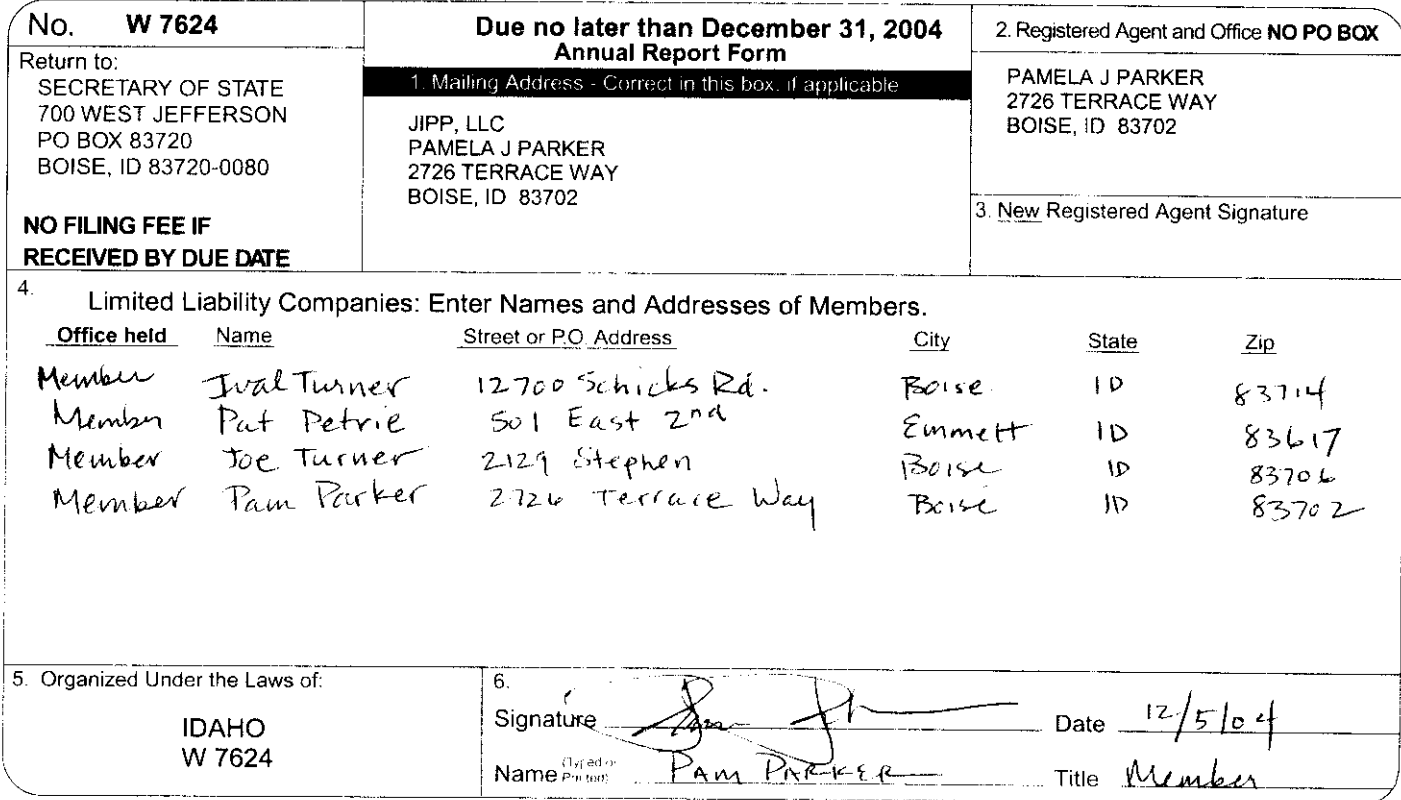 No. W 7624
Return to:
SECRETARY OF STATE
700 WEST JEFFERSON
PO BOX 83720
BOISE, ID 83720-0080
NO FILING FEE IF
RECEIVED BY DUE DATE
Due no later than December 31, 2004
Annual Report Form
1. Mailing Address - Correct in this box, if applicable
JIPP, LLC
PAMELA J PARKER
2726 TERRACE WAY
BOISE, ID 83702
2. Registered Agent and Office NO PO BOX
PAMELA J PARKER
2726 TERRACE WAY
BOISE, ID 83702
3. New Registered Agent Signature
4. Limited Liability Companies: Enter Names and Addresses of Members.
Office held Name Street or P.O. Address City State Zip
Member Ival Turner 12700 Schicks Rd. Boise ID 83714
Member Pat Petrie 501 East 2nd Emmett ID 83617
Member Joe Turner 2129 Stephen Boise ID 83706
Member Pam Parker 2726 Terrace Way Boise ID 83702
5. Organized Under the Laws of:
IDAHO
W 7624
6.
Signature Date 12/5/04
Name (Typed or Printed) PAM PARKER Title Member